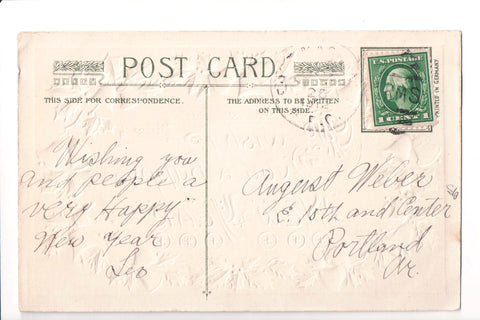 POST CARD.
THIS SIDE FOR CORRESPONDENCE.
THE ADDRESS TO BE WRITTEN
ON THIS SIDE.
U.S. POSTAGE
1 CENT 1
PRINTED IN GERMANY
Wishing you
and people a
very Happy
New Year
Leo
August Weber
E. 15th and Center Sts
Portland
Or.